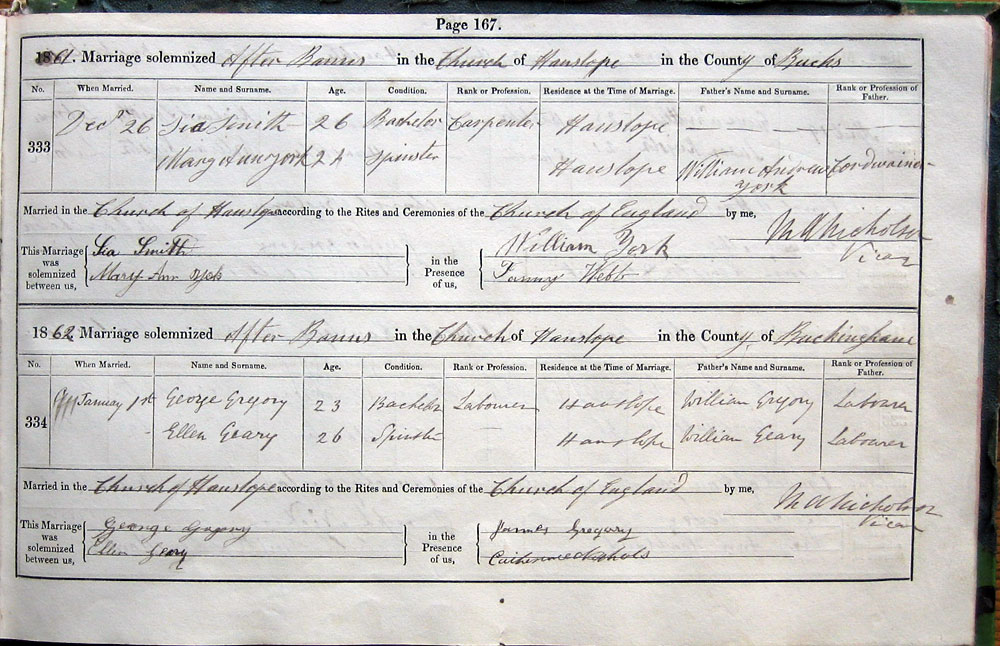 Page 167.
1861. Marriage solemnized After Banns in the Church of Hanslope in the County of Bucks
No. When Married. Name and Surname. Age. Condition. Rank or Profession. Residence at the Time of Marriage. Father's Name and Surname. Rank or Profession of Father.
333 Decr 26 Sia Smith 26 Bachelor Carpenter Hanslope
Mary Ann York 24 Spinster Hanslope William Andrew York Cordwainer
Married in the Church of Hanslope according to the Rites and Ceremonies of the Church of England by me,
M A Nicholson
Vicar
This Marriage was solemnized between us,
Sia Smith
Mary Ann York
in the Presence of us,
William York
Fanny Webb
1862. Marriage solemnized After Banns in the Church of Hanslope in the County of Buckingham
No. When Married. Name and Surname. Age. Condition. Rank or Profession. Residence at the Time of Marriage. Father's Name and Surname. Rank or Profession of Father.
334 January 1st George Gregory 23 Bachelor Labourer Hanslope William Gregory Labourer
Ellen Geary 26 Spinster Hanslope William Geary Labourer
Married in the Church of Hanslope according to the Rites and Ceremonies of the Church of England by me,
M A Nicholson
Vicar
This Marriage was solemnized between us,
George Gregory
Ellen Geary
in the Presence of us,
James Gregory
Catherine Nichols